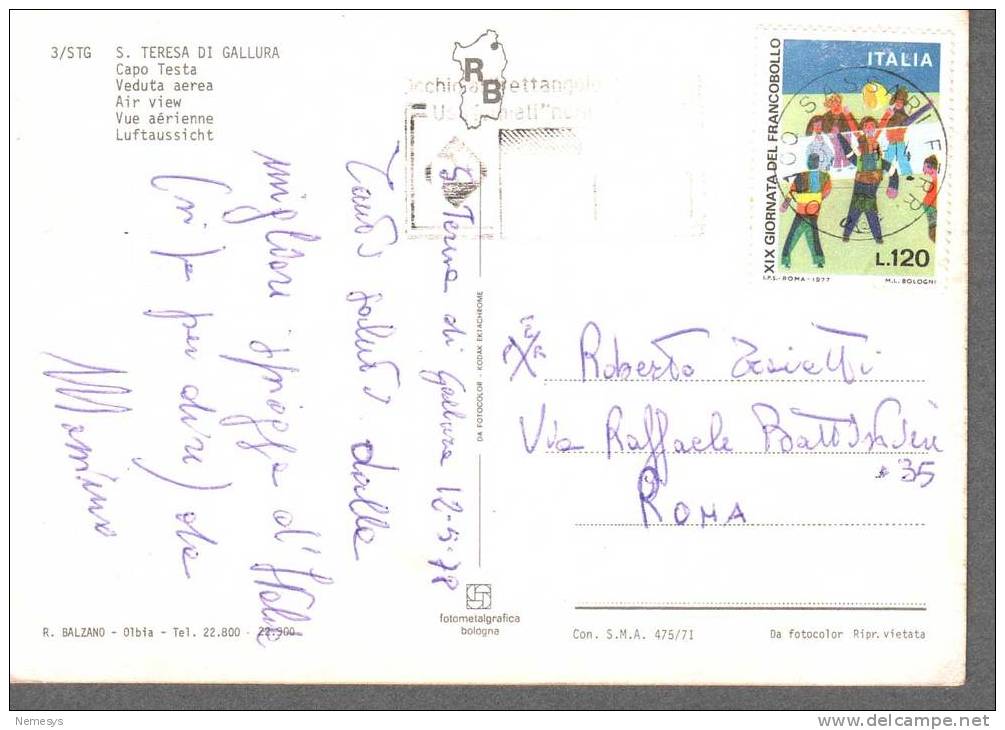 3/STG S. TERESA DI GALLURA
Capo Testa
Veduta aerea
Air view
Vue aérienne
Luftaussicht
RB
ITALIA
XIX GIORNATA DEL FRANCOBOLLO
L.120
I.P.S.-ROMA-1977
M.L. BOLOGNI
SASSARI FERR
S. Teresa di Gallura 12-5-78
Tanti saluti dalla
migliore spiaggia d'Italia
(si fa per dire) da
Mamino
DA FOTOCOLOR - KODAK EKTACHROME
Roberto
Via Raffaele Battistini
35
ROMA
fotometalgrafica
bologna
R. BALZANO - Olbia - Tel. 22.800 - 22.900
Con. S.M.A. 475/71
Da fotocolor Ripr. vietata
Nemesys
www.delcampe.net